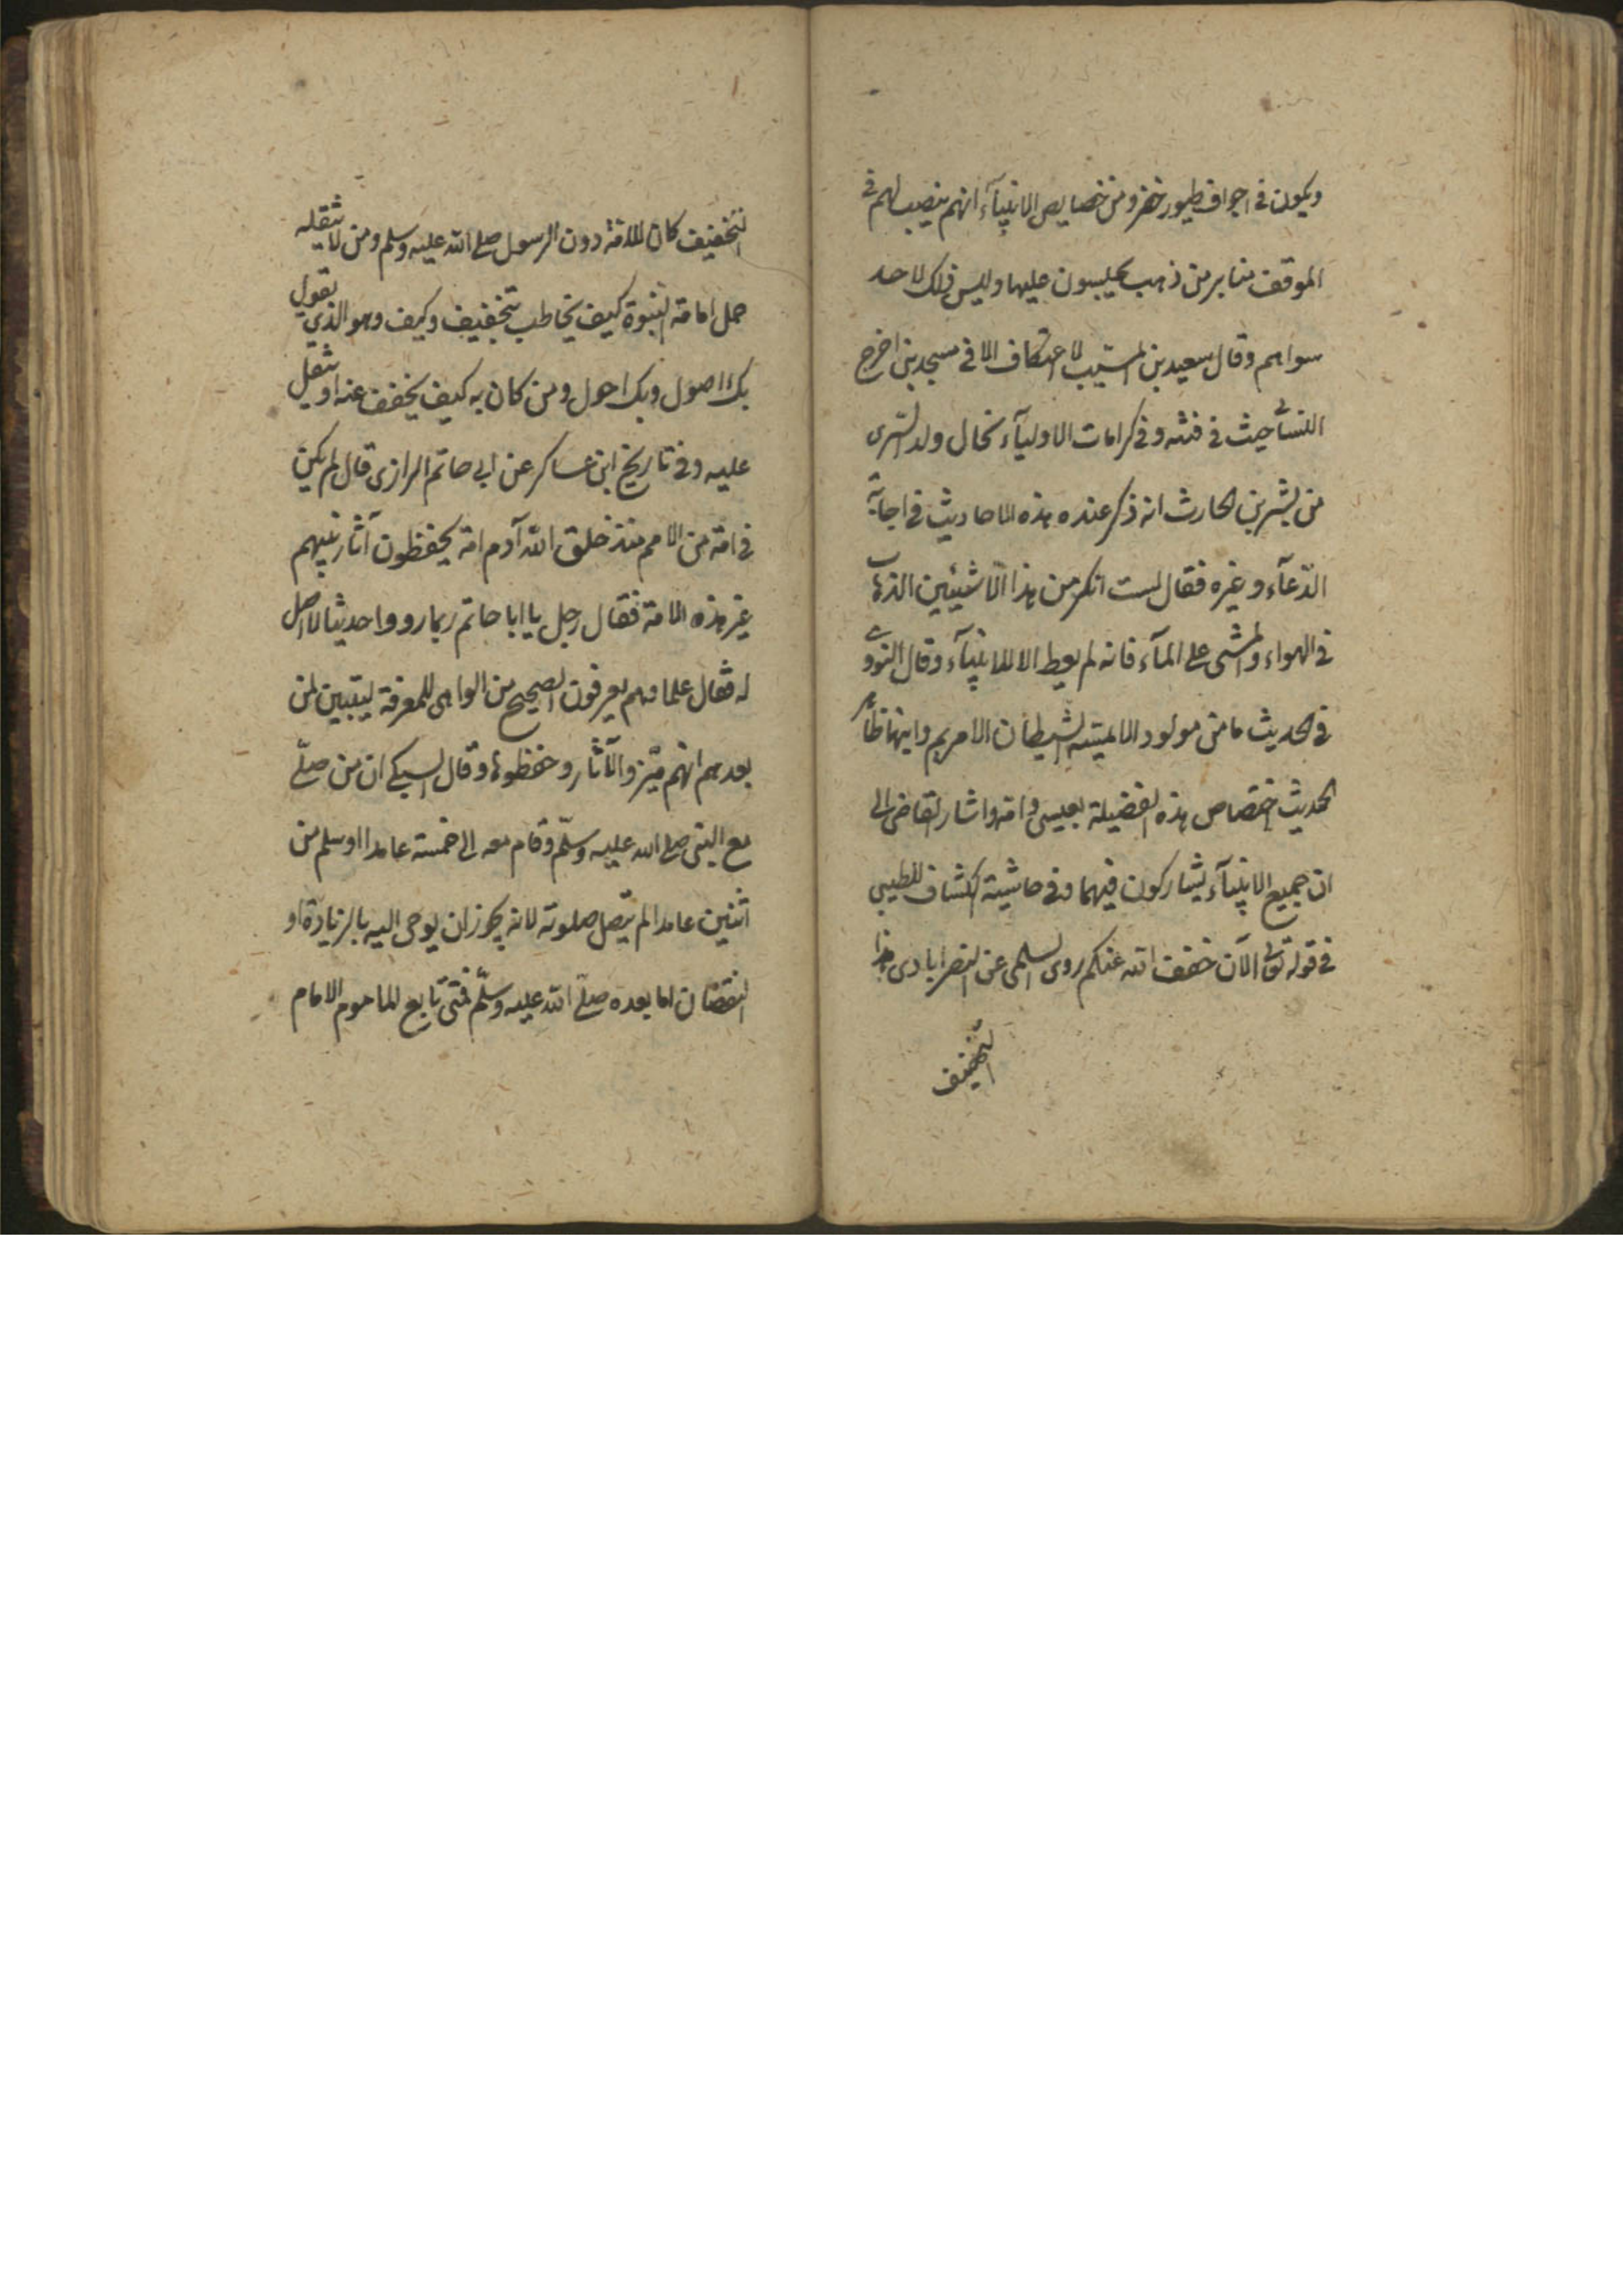 ويكون في اجواف طيور خضر ومن خصايص الانبيآء انهم ينصب لهم في
الموقف منابر من ذهب يجلسون عليها وليس ذلك لاحد
سواهم وقال سعيد بن المسيب لا اعتكاف الا في مسجد بني اخرج
في وفي كرامات الاوليآء لخلال ولد السرى
من بشر بن الحارث انه ذكر عنده هذه الاحاديث في اجابة
الدعآء وغيره فقال لست انكر من هذا الا شيئين الذهاب
في الهواء والمشى على المآء فانه لم يعط الا للانبيآء وقال النووي
في الحديث ما من مولود الا يمسه الشيطان الا مريم وابنها ظاهر
الحديث اختصاص هذه الفضيلة بعيسى وامه واشار القاضى الى
ان جميع الانبيآء يشاركون فيهما وفي حاشية الكشاف للطيبي
في قوله تعالى الآن خفف الله عنكم روى السلمى عن النصرابادى هذا
التخفيف
التخفيف كان للامة دون الرسول صلى الله عليه وسلم ومن لا يثقله
حمل امانة النبوة كيف يخاطب بتخفيف وكيف وهو الذي يقول
بك اصول وبك احول ومن كان به كيف يخفف عنه او يثقل
عليه وفي تاريخ ابن عساكر عن ابى حاتم الرازى قال لم يكن
في امة من الامم منذ خلق الله آدم امة يحفظون آثار نبيهم
غير هذه الامة فقال رجل يا ابا حاتم ربما رووا حديثا لا اصل
له فقال علماوهم يعرفون الصحيح من الواهى للمعرفة ليتبين لمن
بعدهم انهم ميزوا الآثار وحفظوها وقال السبكى ان من صلى
مع النبى صلى الله عليه وسلم وقام معه الى خمسة عامدا او سلم من
اثنين عامدا لم صلوته لانه يجوز ان يوحى اليه بالزيادة او
النقصان اما بعده صلى الله عليه وسلم فمتى تابع الماموم الامام